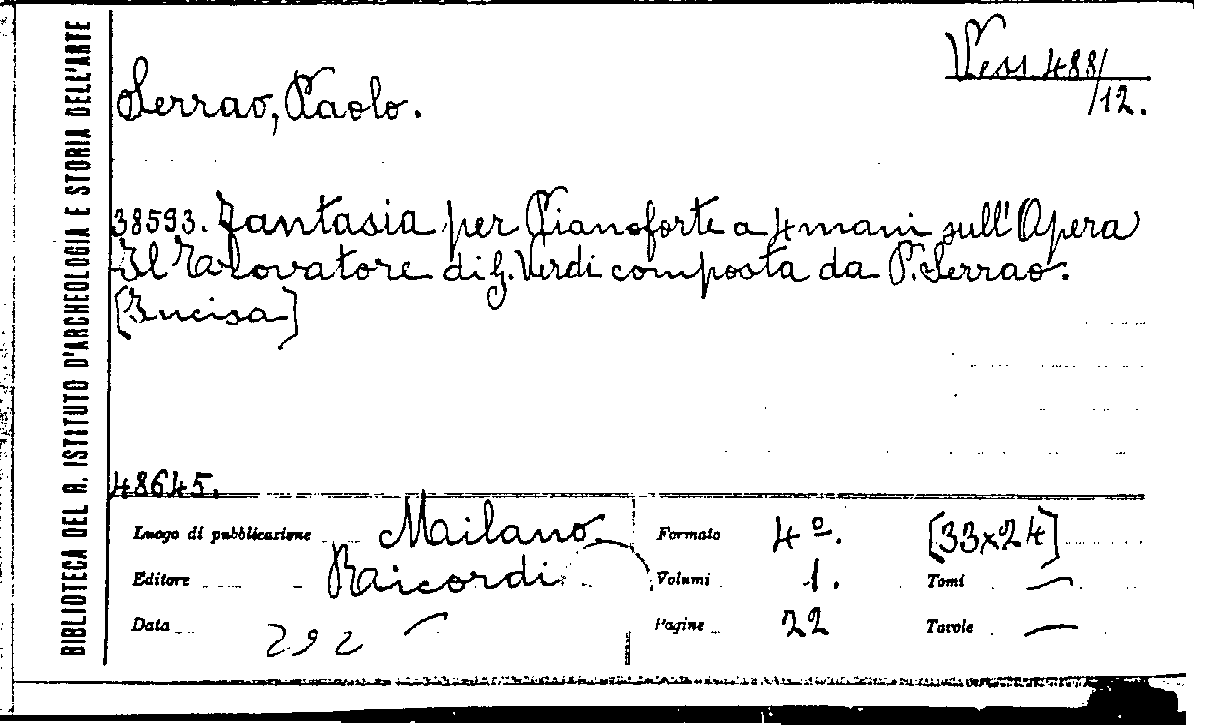 BIBLIOTECA DEL R. ISTITUTO D'ARCHEOLOGIA E STORIA DELL'ARTE
Vess 488/
/12.
Serrao, Paolo.
38593. Fantasia per Pianoforte a 4 mani sull'Opera
Il Trovatore di G. Verdi composta da P. Serrao.
[Incisa]
48645.
Luogo di pubblicazione Milano. Formato 4º. [33x24]
Editore Ricordi Volumi 1. Tomi —
Data 292 — Pagine 22 Tavole —